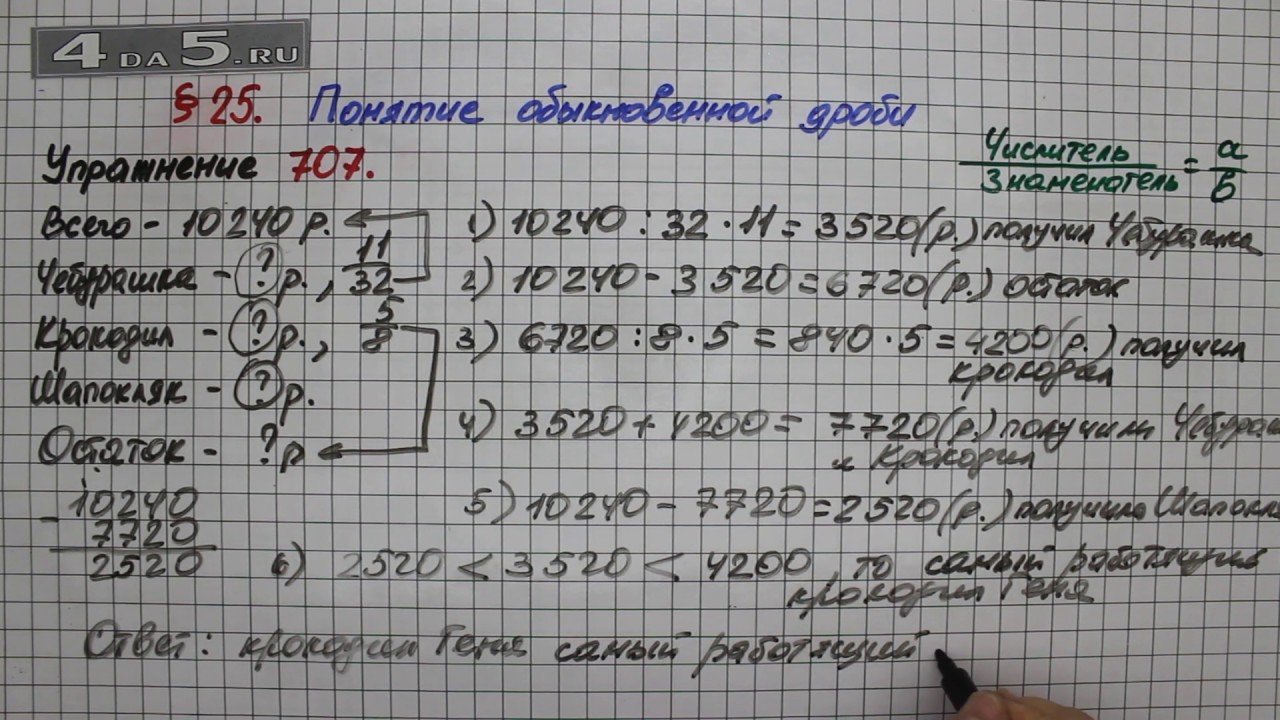 4DA5.RU
§ 25. Понятие обыкновенной дроби
Упражнение 707.
Числитель
Знаменатель
= a
b
Всего - 10240 р.
Чебурашка - ? р., 11
32
Крокодил - ? р., 5
8
Шапокляк - ? р.
Остаток - ? р
10240
- 7720
2520
1) 10240 : 32 · 11 = 3520 (р.) получил Чебурашка
2) 10240 - 3520 = 6720 (р.) остаток
3) 6720 : 8 · 5 = 840 · 5 = 4200 (р.) получил
крокодил
4) 3520 + 4200 = 7720 (р.) получили Чебураш
и Крокодил
5) 10240 - 7720 = 2520 (р.) получила Шапокл
6) 2520 < 3520 < 4200, то самый работящий
крокодил Гена
Ответ: крокодил Гена самый работящий